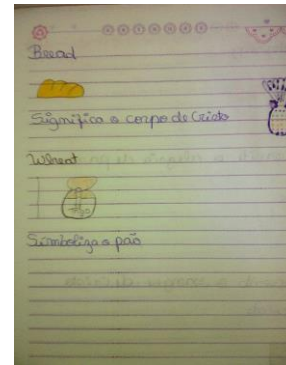 Bread
Significa o corpo de Cristo
Wheat
Simboliza o pão